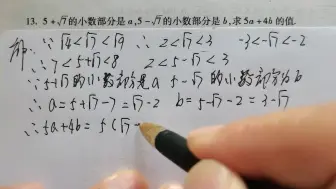 13. 5+√7的小数部分是a,5-√7的小数部分是b,求5a+4b的值.
解: ∵ √4<√7<√9 ∴ 2<√7<3 -3<-√7<-2
∴ 7<5+√7<8 2<5-√7<3
∵ 5+√7的小数部分是a 5-√7的小数部分b
∴ a=5+√7-7=√7-2 b=5-√7-2=3-√7
∴ 5a+4b= 5(√7-